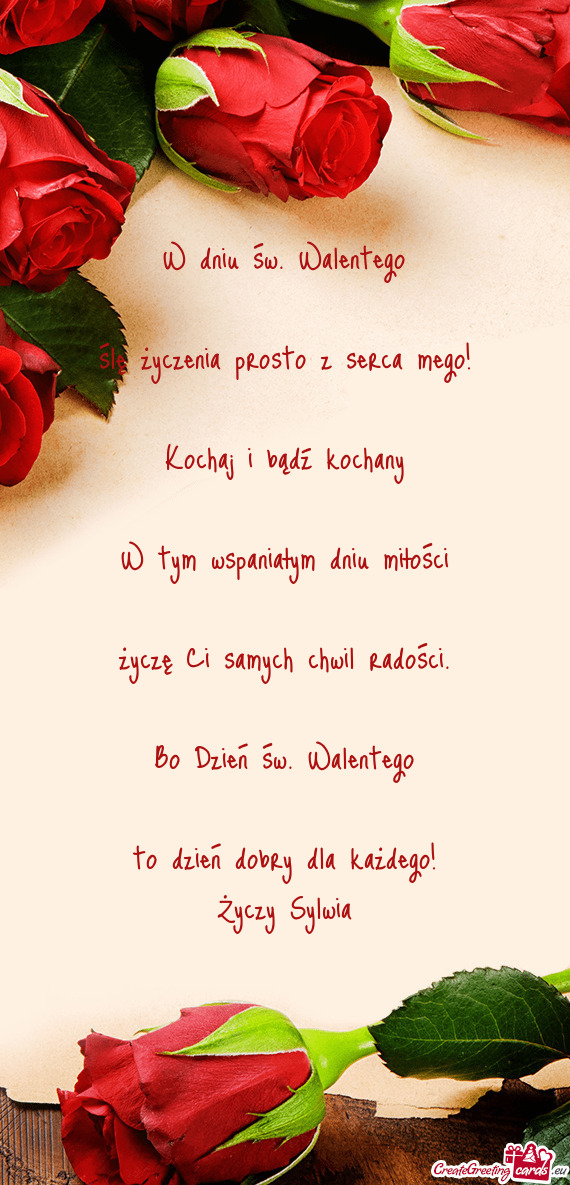 W dniu św. Walentego
ślę życzenia prosto z serca mego!
Kochaj i bądź kochany
W tym wspaniałym dniu miłości
życzę Ci samych chwil radości.
Bo Dzień św. Walentego
to dzień dobry dla każdego!
Życzy Sylwia
CreateGreeting cards .eu